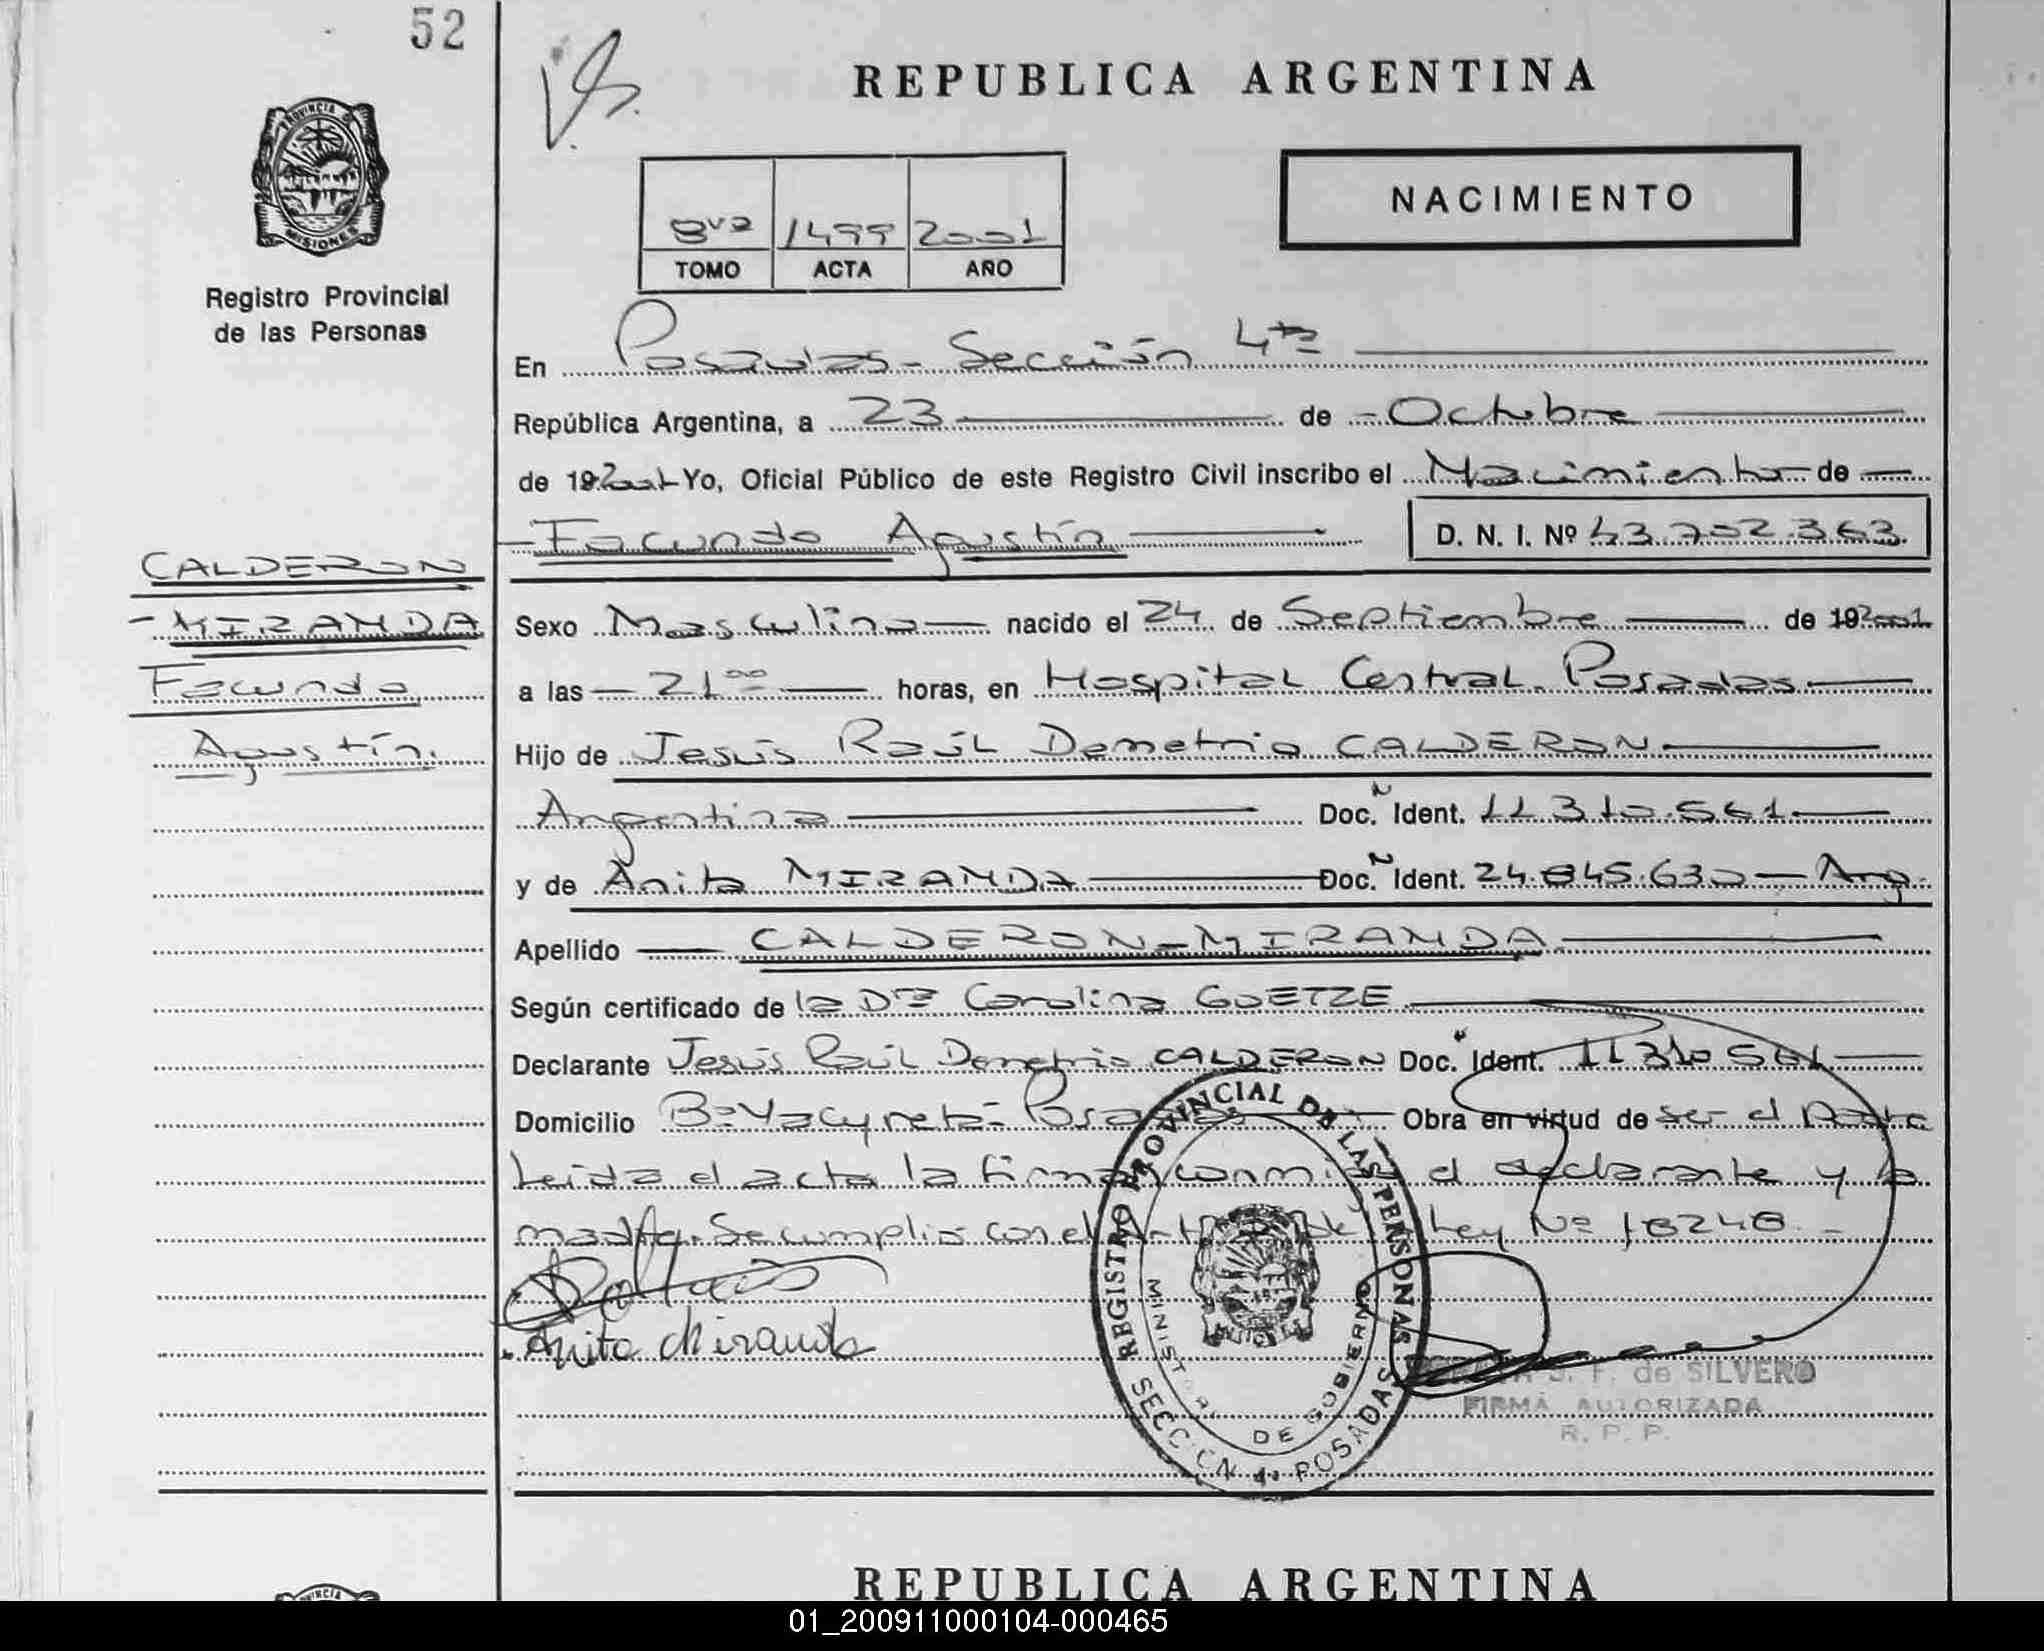 52
REPUBLICA ARGENTINA
PROVINCIA DE
MISIONES
Registro Provincial
de las Personas
NACIMIENTO
8va 1499 2001
TOMO ACTA AÑO
En Posadas - Sección 4ta
República Argentina, a 23 de - Octubre
de 19 2001 Yo, Oficial Público de este Registro Civil inscribo el Nacimiento de
- Facundo Agustín D. N. I. Nº 43.702.363
CALDERON
- MIRANDA
Facundo
Agustín.
Sexo Masculino nacido el 24 de Septiembre de 19 2001
a las 21 00 horas, en Hospital Central. Posadas
Hijo de Jesús Raúl Demetrio CALDERON
Argentina Doc. N Ident. 11.310.561
y de Anita MIRANDA Doc. N Ident. 24.845.630 - Arg.
Apellido CALDERON - MIRANDA
Según certificado de la Dra Carolina GOETZE
Declarante Jesús Raúl Demetrio CALDERON Doc. Ident. 11310561
Domicilio Bº Yacyretá - Posadas Obra en virtud de ser el Padre
Leida el acta la firma conmigo el declarante y la
madre. Se cumplió con el Ley Nº 18248. -
Anita Miranda
REGISTRO PROVINCIAL DE LAS PERSONAS
MINISTERIO DE GOBIERNO
SECCION 4a POSADAS
J. F. de SILVERO
FIRMA AUTORIZADA
R. P. P.
REPUBLICA ARGENTINA
01_200911000104-000465